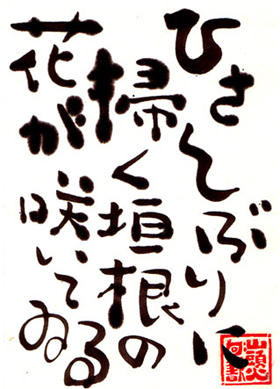 ひさしぶりに
掃く垣根の
花が咲いてゐる
山頭火
句